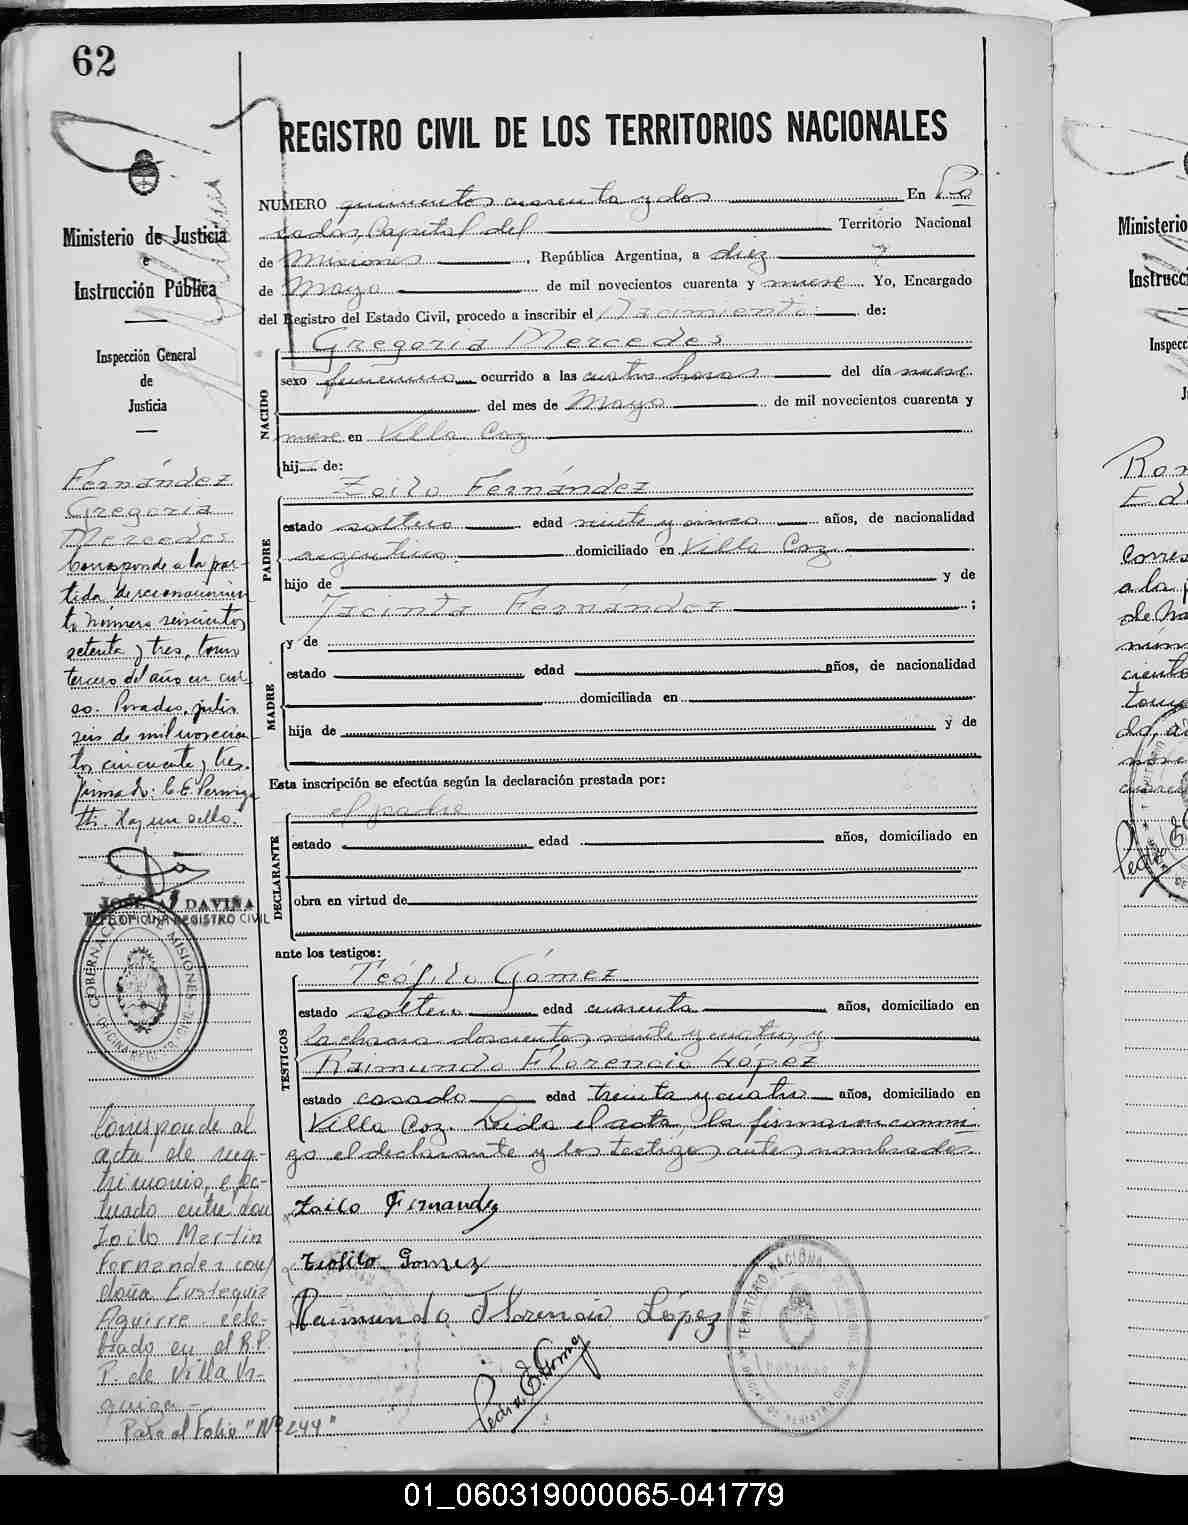 62
REGISTRO CIVIL DE LOS TERRITORIOS NACIONALES
Ministerio de Justicia
e
Instrucción Pública
Inspección General
de
Justicia
NUMERO quinientos cuarenta y dos En Po
sadas, Capital del Territorio Nacional
de Misiones, República Argentina, a diez
de Mayo de mil novecientos cuarenta y nueve Yo, Encargado
del Registro del Estado Civil, procedo a inscribir el Nacimiento de:
NACIDO
Gregoria Mercedes
sexo femenino ocurrido a las cuatro horas del día nueve
del mes de Mayo de mil novecientos cuarenta y
nueve en Villa Coz
hij de:
PADRE
Zoilo Fernández
estado soltero edad veinte y cinco años, de nacionalidad
argentino domiciliado en Villa Coz
hijo de y de
Jacinta Fernández ;
MADRE
y de
estado edad años, de nacionalidad
domiciliada en
hija de y de
Esta inscripción se efectúa según la declaración prestada por:
el padre
DECLARANTE
estado edad años, domiciliado en
obra en virtud de
ante los testigos:
TESTIGOS
Teófilo Gómez
estado soltero edad cuarenta años, domiciliado en
la chacra doscientos veinte y cuatro, y
Raimundo Florencio López
estado casado edad treinta y cuatro años, domiciliado en
Villa Coz. Leida el acta, la firmaron conmi
go el declarante y los testigos antes nombrados.
Zoilo Fernandez
Teofilo Gomez
Raimundo Florencio López
Pedro E. Gomez
TERRITORIO NACIONAL DE MISIONES
POSADAS
Fernández
Gregoria
Mercedes
Corresponde a la par-
tida de reconocimien
to número seiscientos
setenta y tres, tomo
tercero del año en cur-
so. Posadas, julio
seis de mil novecien
tos cincuenta y tres.
Firmado: C. E. Perniga
tti. Hay un sello.
JOSE A. DAVIÑA
JEFE OFICINA REGISTRO CIVIL
GOBERNACION DE MISIONES
OFICINA REGISTRO CIVIL
Corresponde al
acta de matrimonio, efec-
tuado entre don
Zoilo Martin
Fernandez con
doña Eustaquia
Aguirre cele-
brado en el R.P.
P. de Villa Ur-
quiza -
Pasa al Folio "Nº 244"
Ministerio
Instrucci
Inspecc
J
Ron
Ed
Corres
a la p
de na
núm
ciento
tomo
01_060319000065-041779